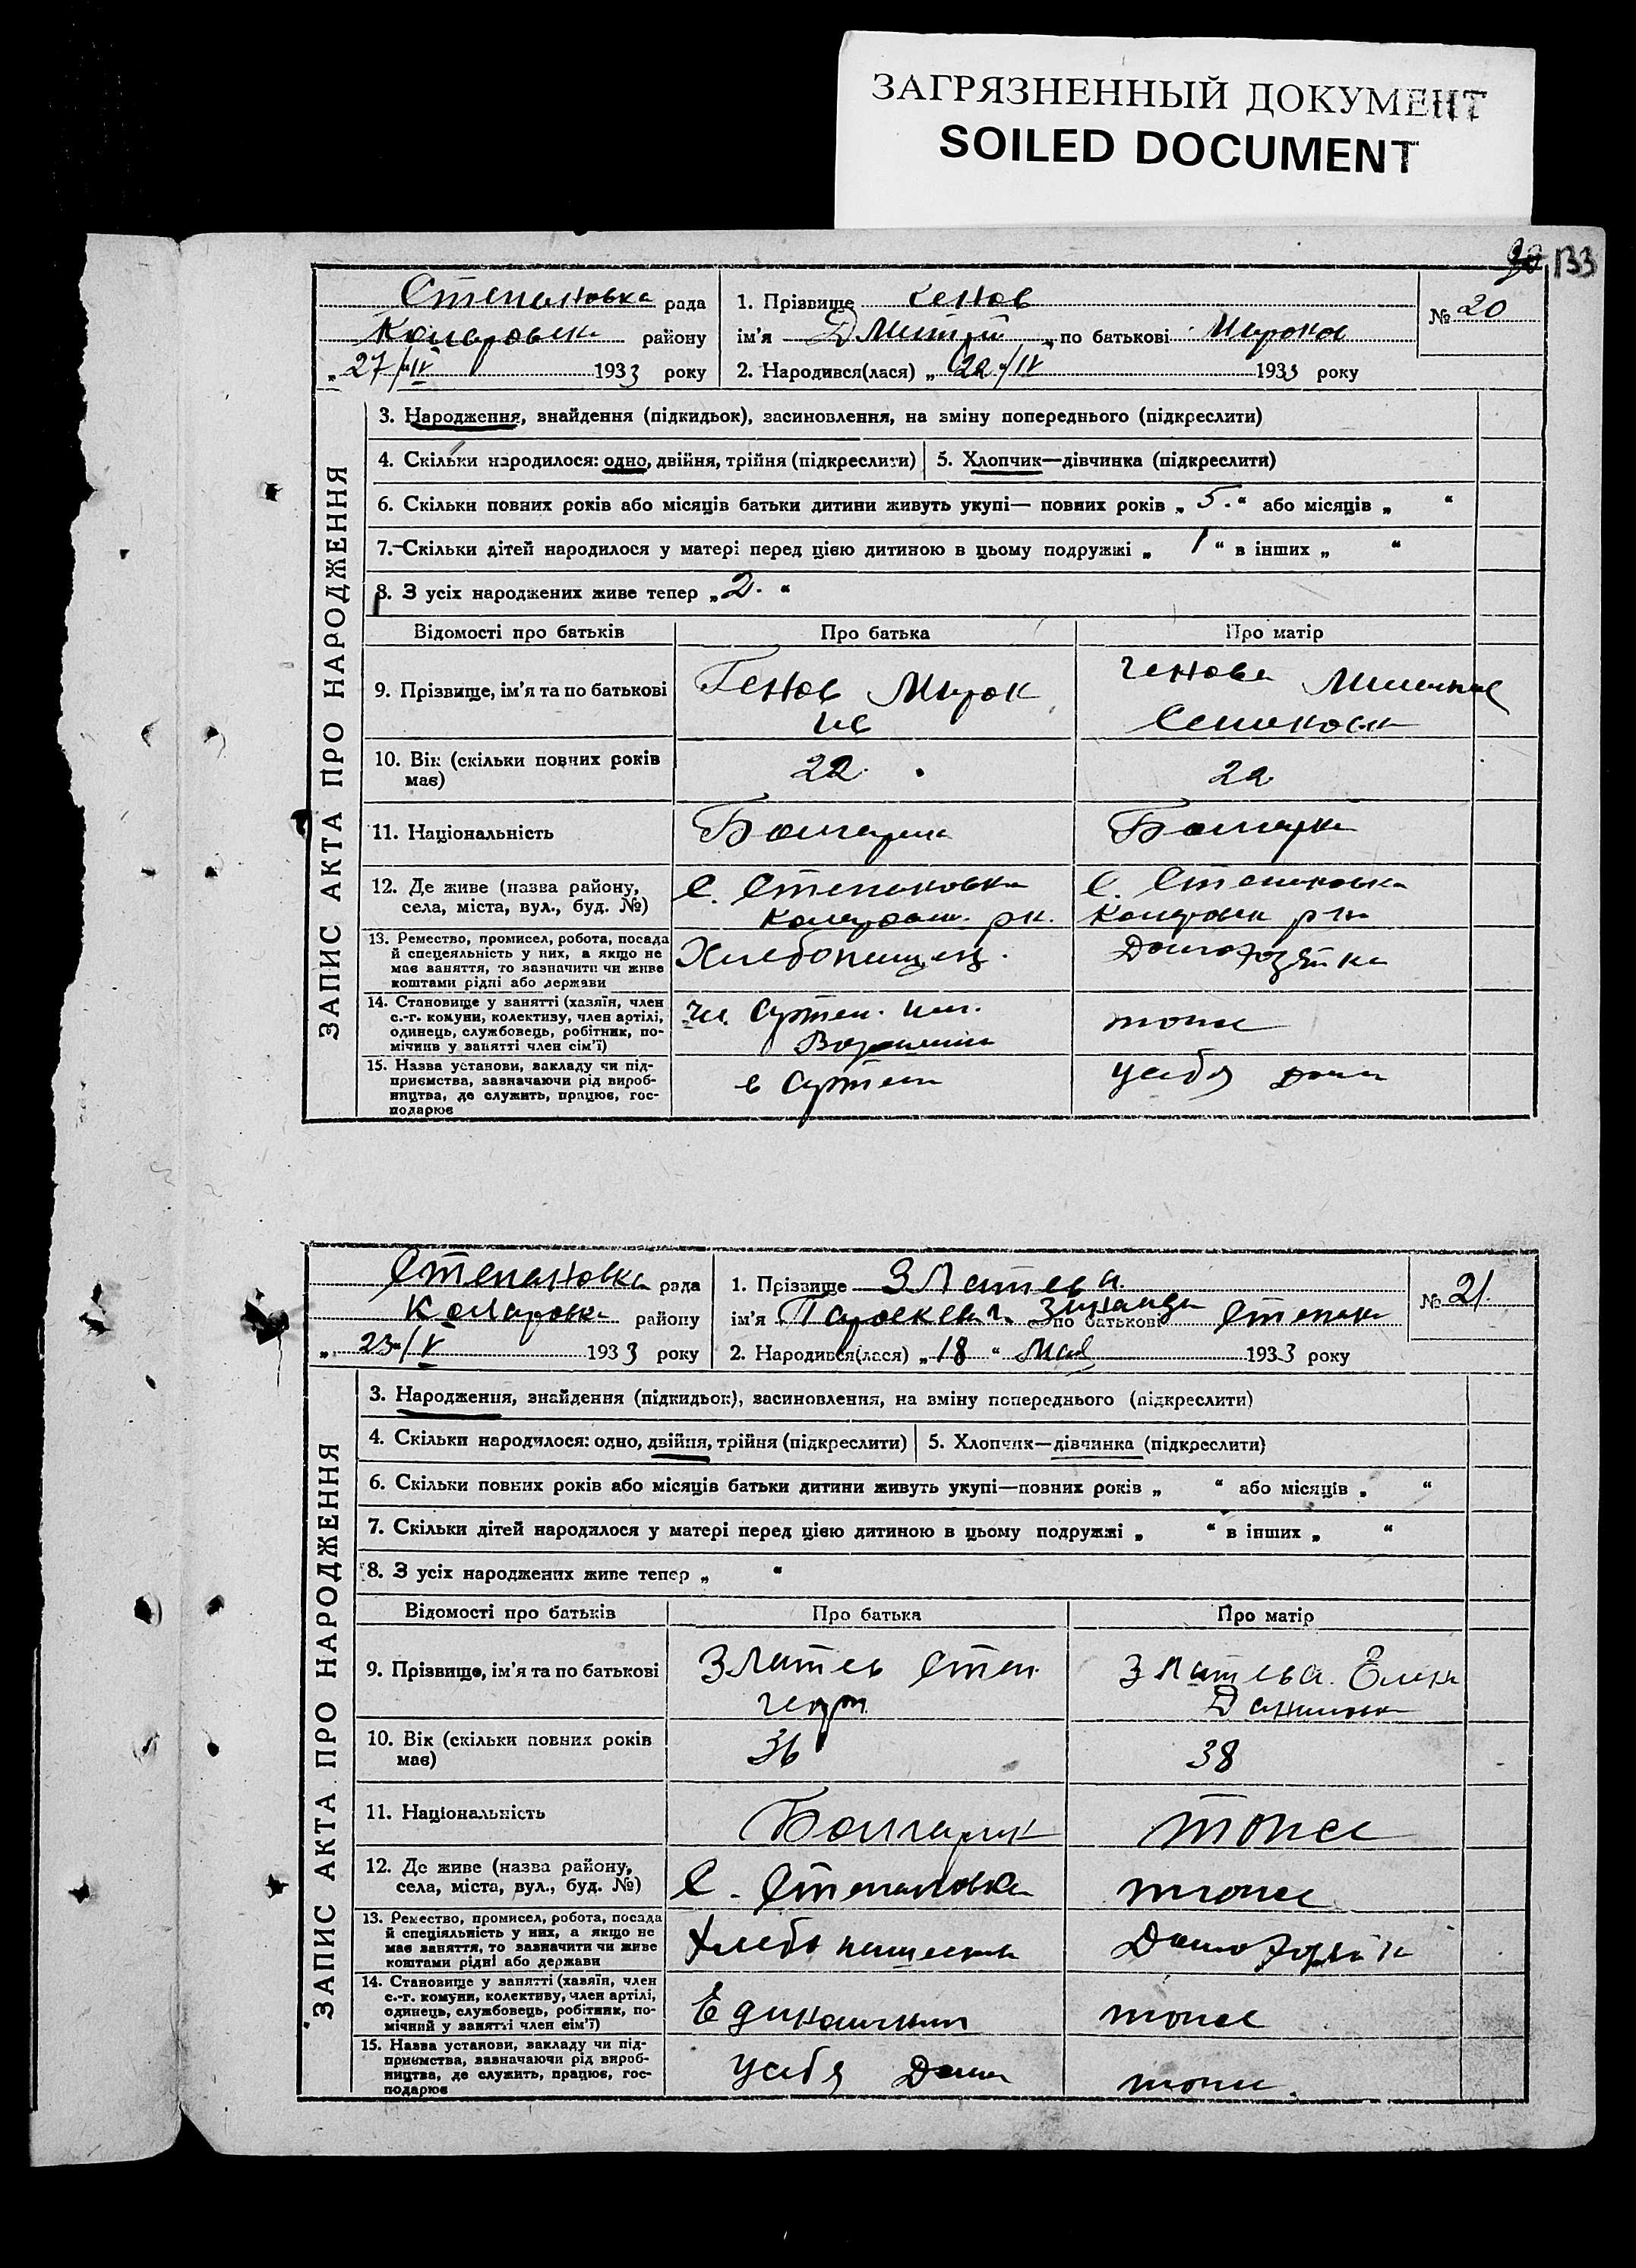 ЗАГРЯЗНЕННЫЙ ДОКУМЕНТ
SOILED DOCUMENT
133
Степановка рада
району
„27/IV 1933 року
1. Прізвище Генов
ім'я Дмитрий по батькові Миронов
2. Народився(лася) „22/IV 1933 року
№ 20
ЗАПИС АКТА ПРО НАРОДЖЕННЯ
3. Народження, знайдення (підкидьок), засиновлення, на зміну попереднього (підкреслити)
4. Скільки народилося: одно, двійня, трійня (підкреслити) 5. Хлопчик—дівчинка (підкреслити)
6. Скільки повних років або місяців батьки дитини живуть укупі— повних років „ 5. “ або місяців „ “
7. Скільки дітей народилося у матері перед цією дитиною в цьому подружжі „ 1 “ в інших „ “
8. З усіх народжених живе тепер „ 2. “
Відомості про батьків Про батька Про матір
9. Прізвище, ім'я та по батькові Генов Мирон Генова
Ив
10. Вік (скільки повних років 22 22
має)
11. Національність Болгарин Болгарка
12. Де живе (назва району, С. Степановка С. Степановка
села, міста, вул., буд. №)
13. Ремество, промисел, робота, посада Хлебопашец. Домохозяйка
й спецеяльність у них, а якщо не
має заняття, то зазначити чи живе
коштами рідні або держави
14. Становище у занятті (хазяїн, член чл. Артели им. тоже
с.-г. комуни, колективу, член артілі, Ворошилова
одинець, службовець, робітник, по-
мічник у занятті член сім'ї)
15. Назва установи, закладу чи під- в Артели у себя дома
приємства, зазначаючи рід вироб-
ництва, де служить, працює, гос-
подарює
Степановка рада
району
„ 23/V 1933 року
1. Прізвище Златева
ім'я Параскева Зинаида по батькові Степан
2. Народився(лася) „18 “ Мая 1933 року
№ 21.
ЗАПИС АКТА ПРО НАРОДЖЕННЯ
3. Народження, знайдення (підкидьок), засиновлення, на зміну попереднього (підкреслити)
4. Скільки народилося: одно, двійня, трійня (підкреслити) 5. Хлопчик—дівчинка (підкреслити)
6. Скільки повних років або місяців батьки дитини живуть укупі—повних років „ “ або місяців „ “
7. Скільки дітей народилося у матері перед цією дитиною в цьому подружжі „ “ в інших „ “
8. З усіх народжених живе тепер „ “
Відомості про батьків Про батька Про матір
9. Прізвище, ім'я та по батькові Златев Степ. Златева. Елена
Георг.
10. Вік (скільки повних років 36 38
має)
11. Національність Болгарин тоже
12. Де живе (назва району, С. Степановка тоже
села, міста, вул., буд. №)
13. Ремество, промисел, робота, посада Хлебопашество Домохозяйк
й спеціяльність у них, а якщо не
має заняття, то зазначити чи живе
коштами рідні або держави
14. Становище у занятті (хазяїн, член Единоличник тоже
с.-г. комуни, колективу, член артілі,
одинець, службовець, робітник, по-
мічний у занятті член сім'ї)
15. Назва установи, закладу чи під- у себя Дома тоже.
приємства, зазначаючи рід вироб-
ництва, де служить, працює, гос-
подарює